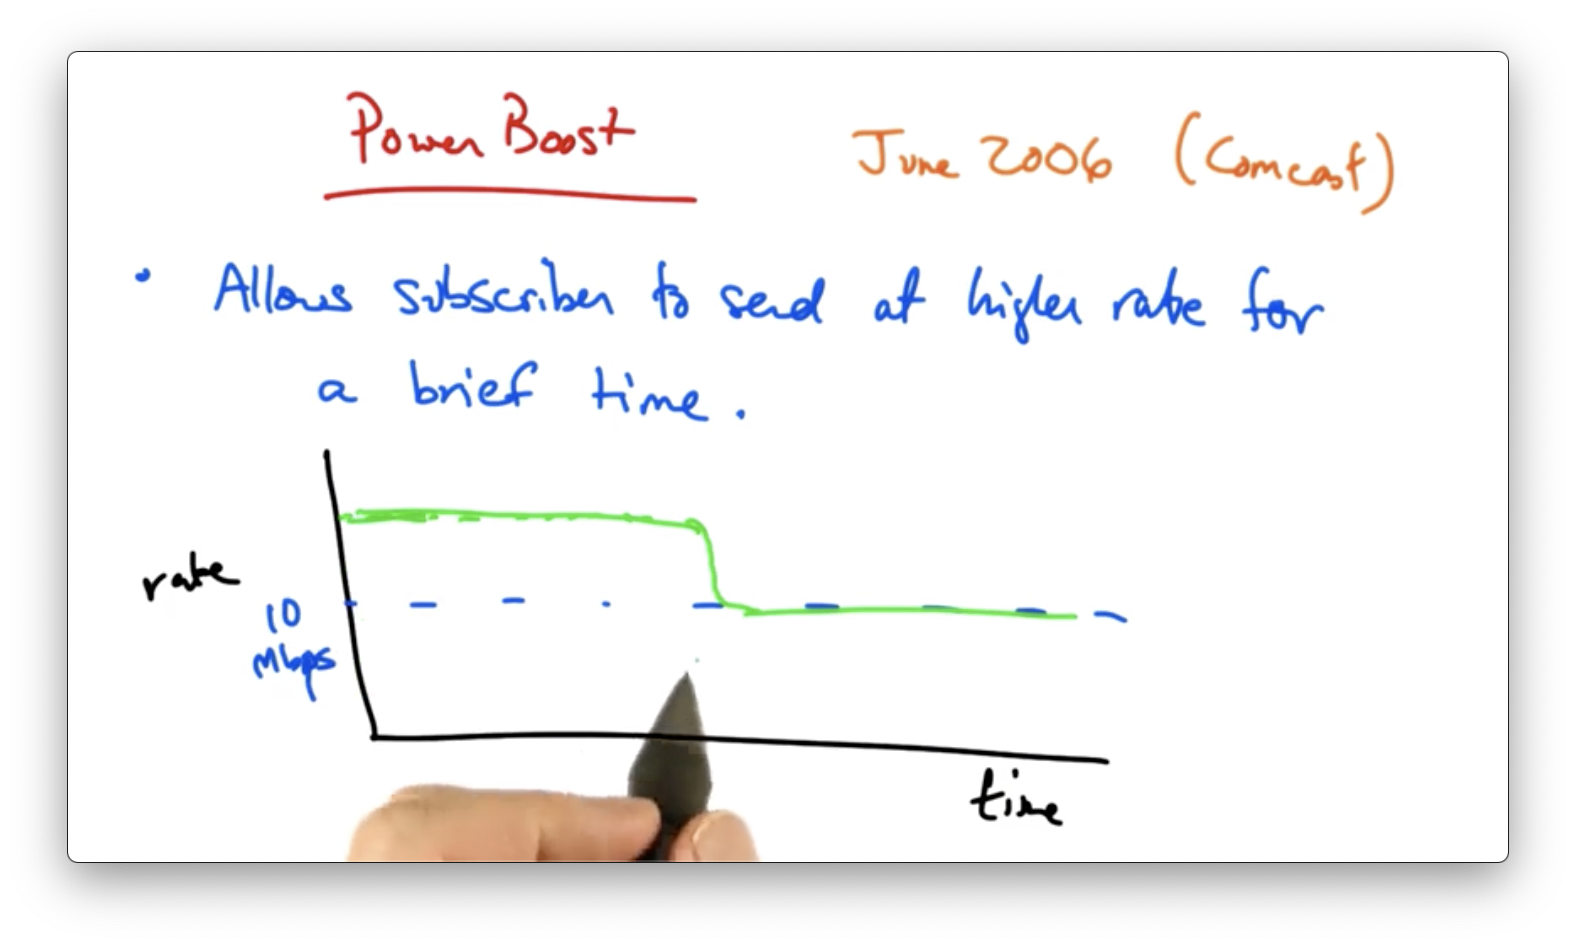 Power Boost
June 2006 (Comcast)
• Allows subscriber to send at higher rate for
a brief time.
rate
10
Mbps
time